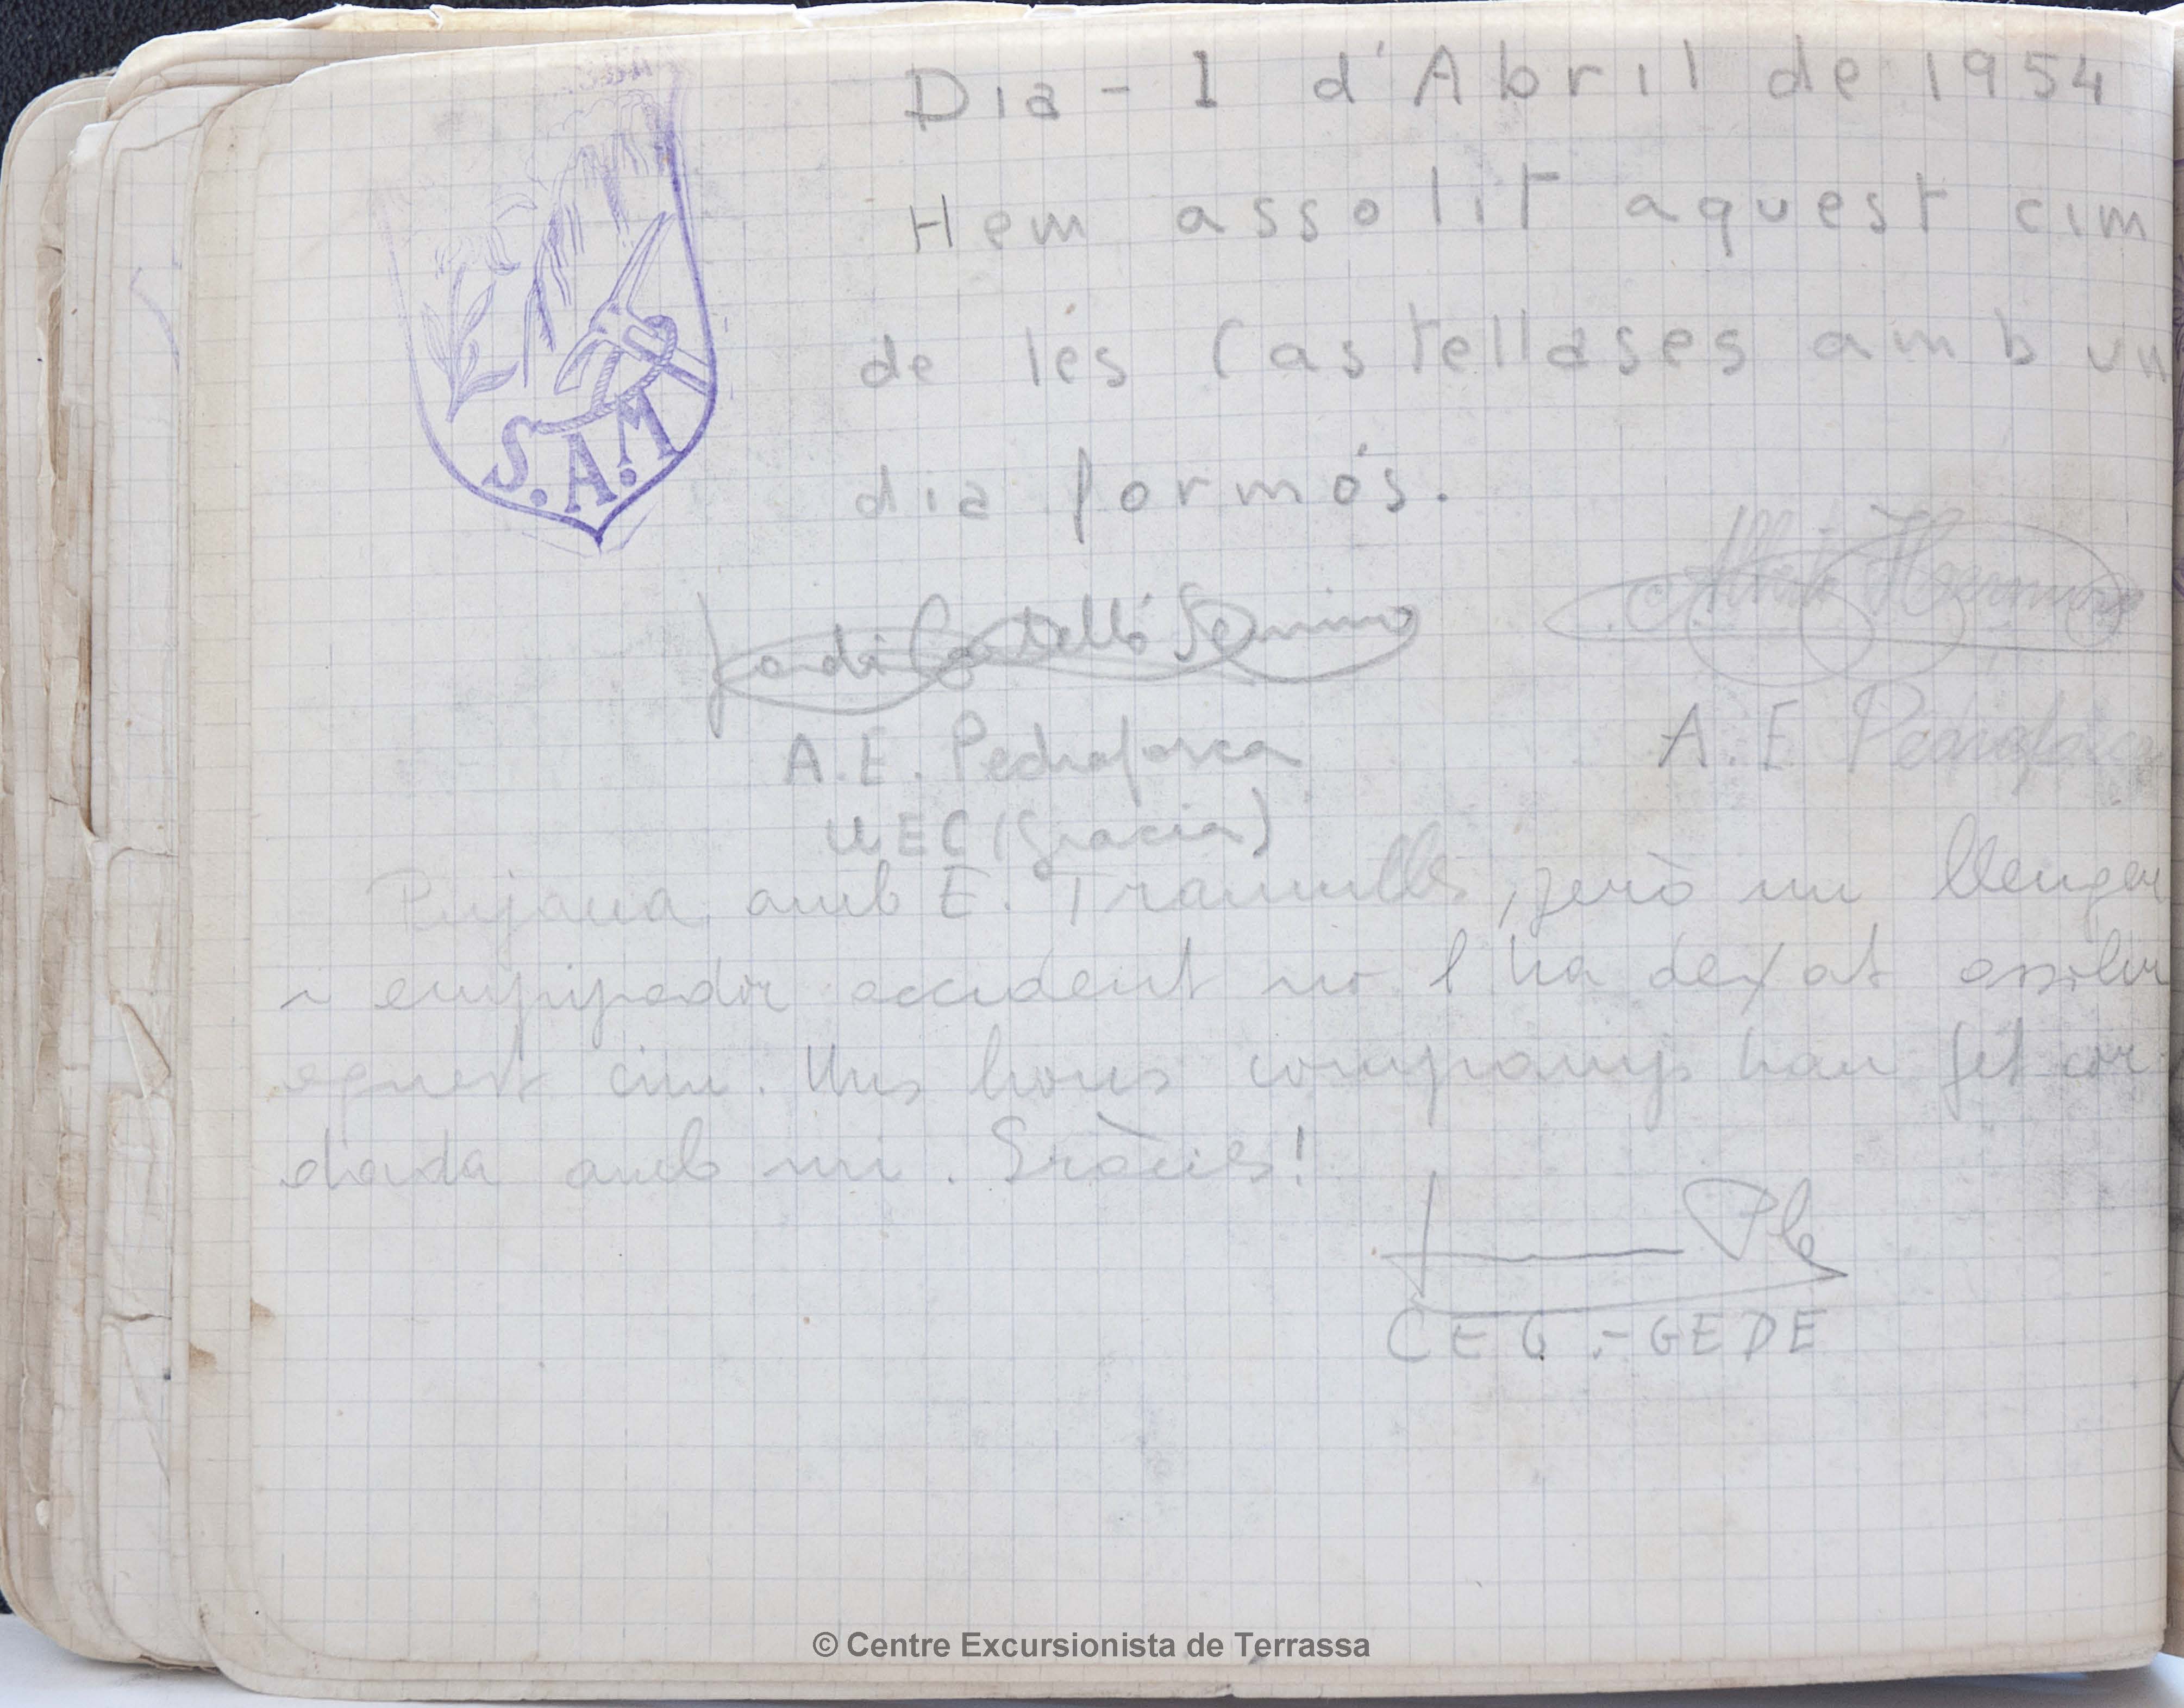 Dia - 1 d'Abril de 1954
Hem assolit aquest cim
de lés Castellases amb un
dia formós.
S.A.M
Jordi Castelló
A.E. Pedraforca
A.E Pedraforca
UEC (Gracia)
Pujava amb E. Tramulles, però un lleuger
i empipador accident no l'ha dexat assolir
aquest cim. Uns bons companys han fet cor
dada amb mi. Gràcies!
CEG.-GEDE
© Centre Excursionista de Terrassa